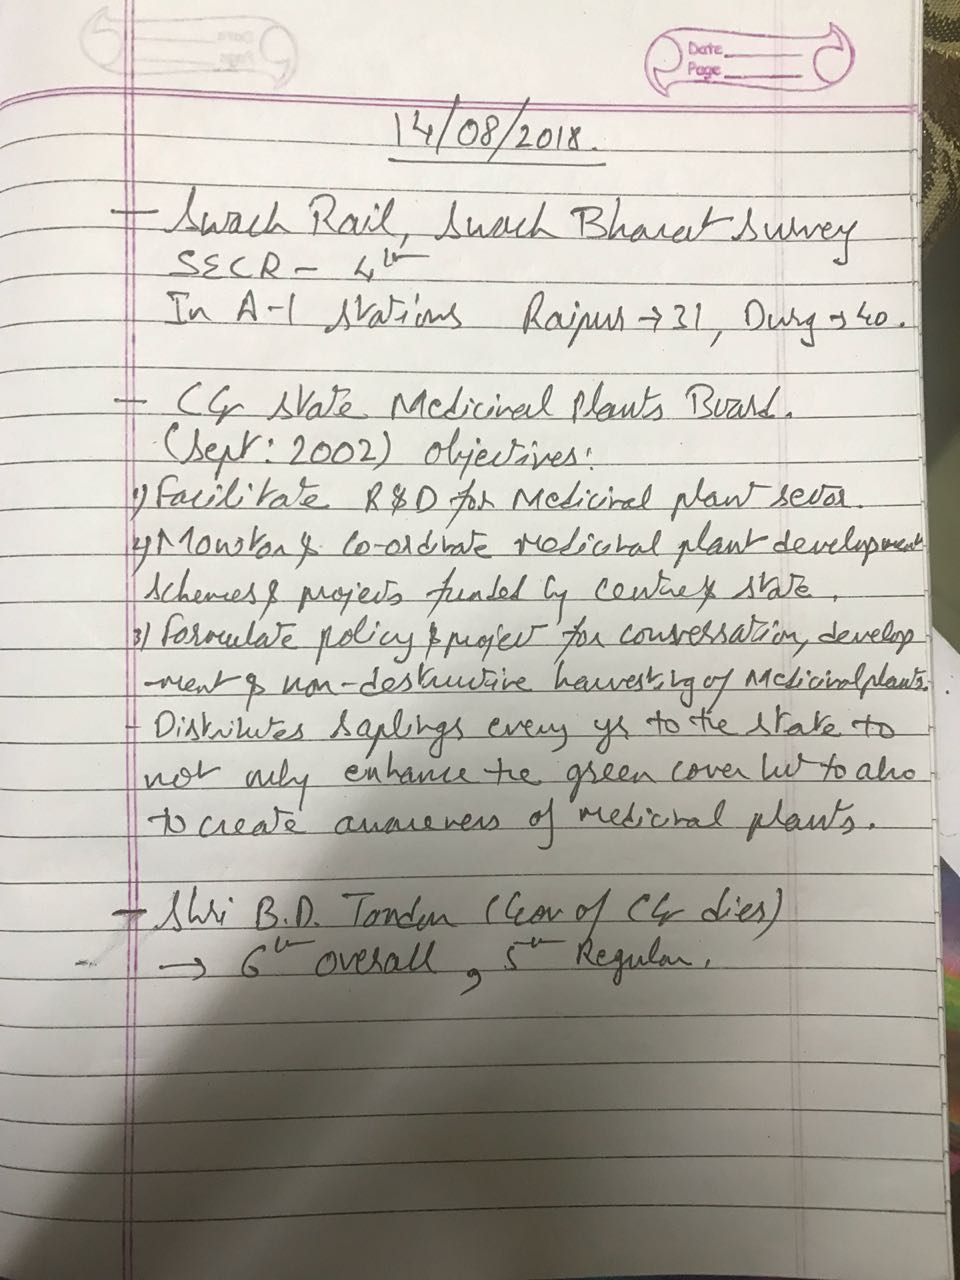 Date
Page
14/08/2018.
- Swach Rail, Swach Bharat Survey
SECR - 4th
In A-1 stations Raipur → 31, Durg → 40.
- CG state Medicinal Plants Board.
(Sept: 2002) Objectives:
1) Facilitate R&D for Medicinal plant sector.
2) Monitor & Co-ordinate medicinal plant development
schemes & projects funded by centre & state.
3) Formulate policy & project for conversation, develop
-ment & non-destructive harvesting of Medicinal plants.
- Distributes saplings every yr to the state to
not only enhance the green cover but to also
to create awareness of medicinal plants.
- Shri B.D. Tandon (Gov of CG dies)
→ 6th overall, 5th Regular.